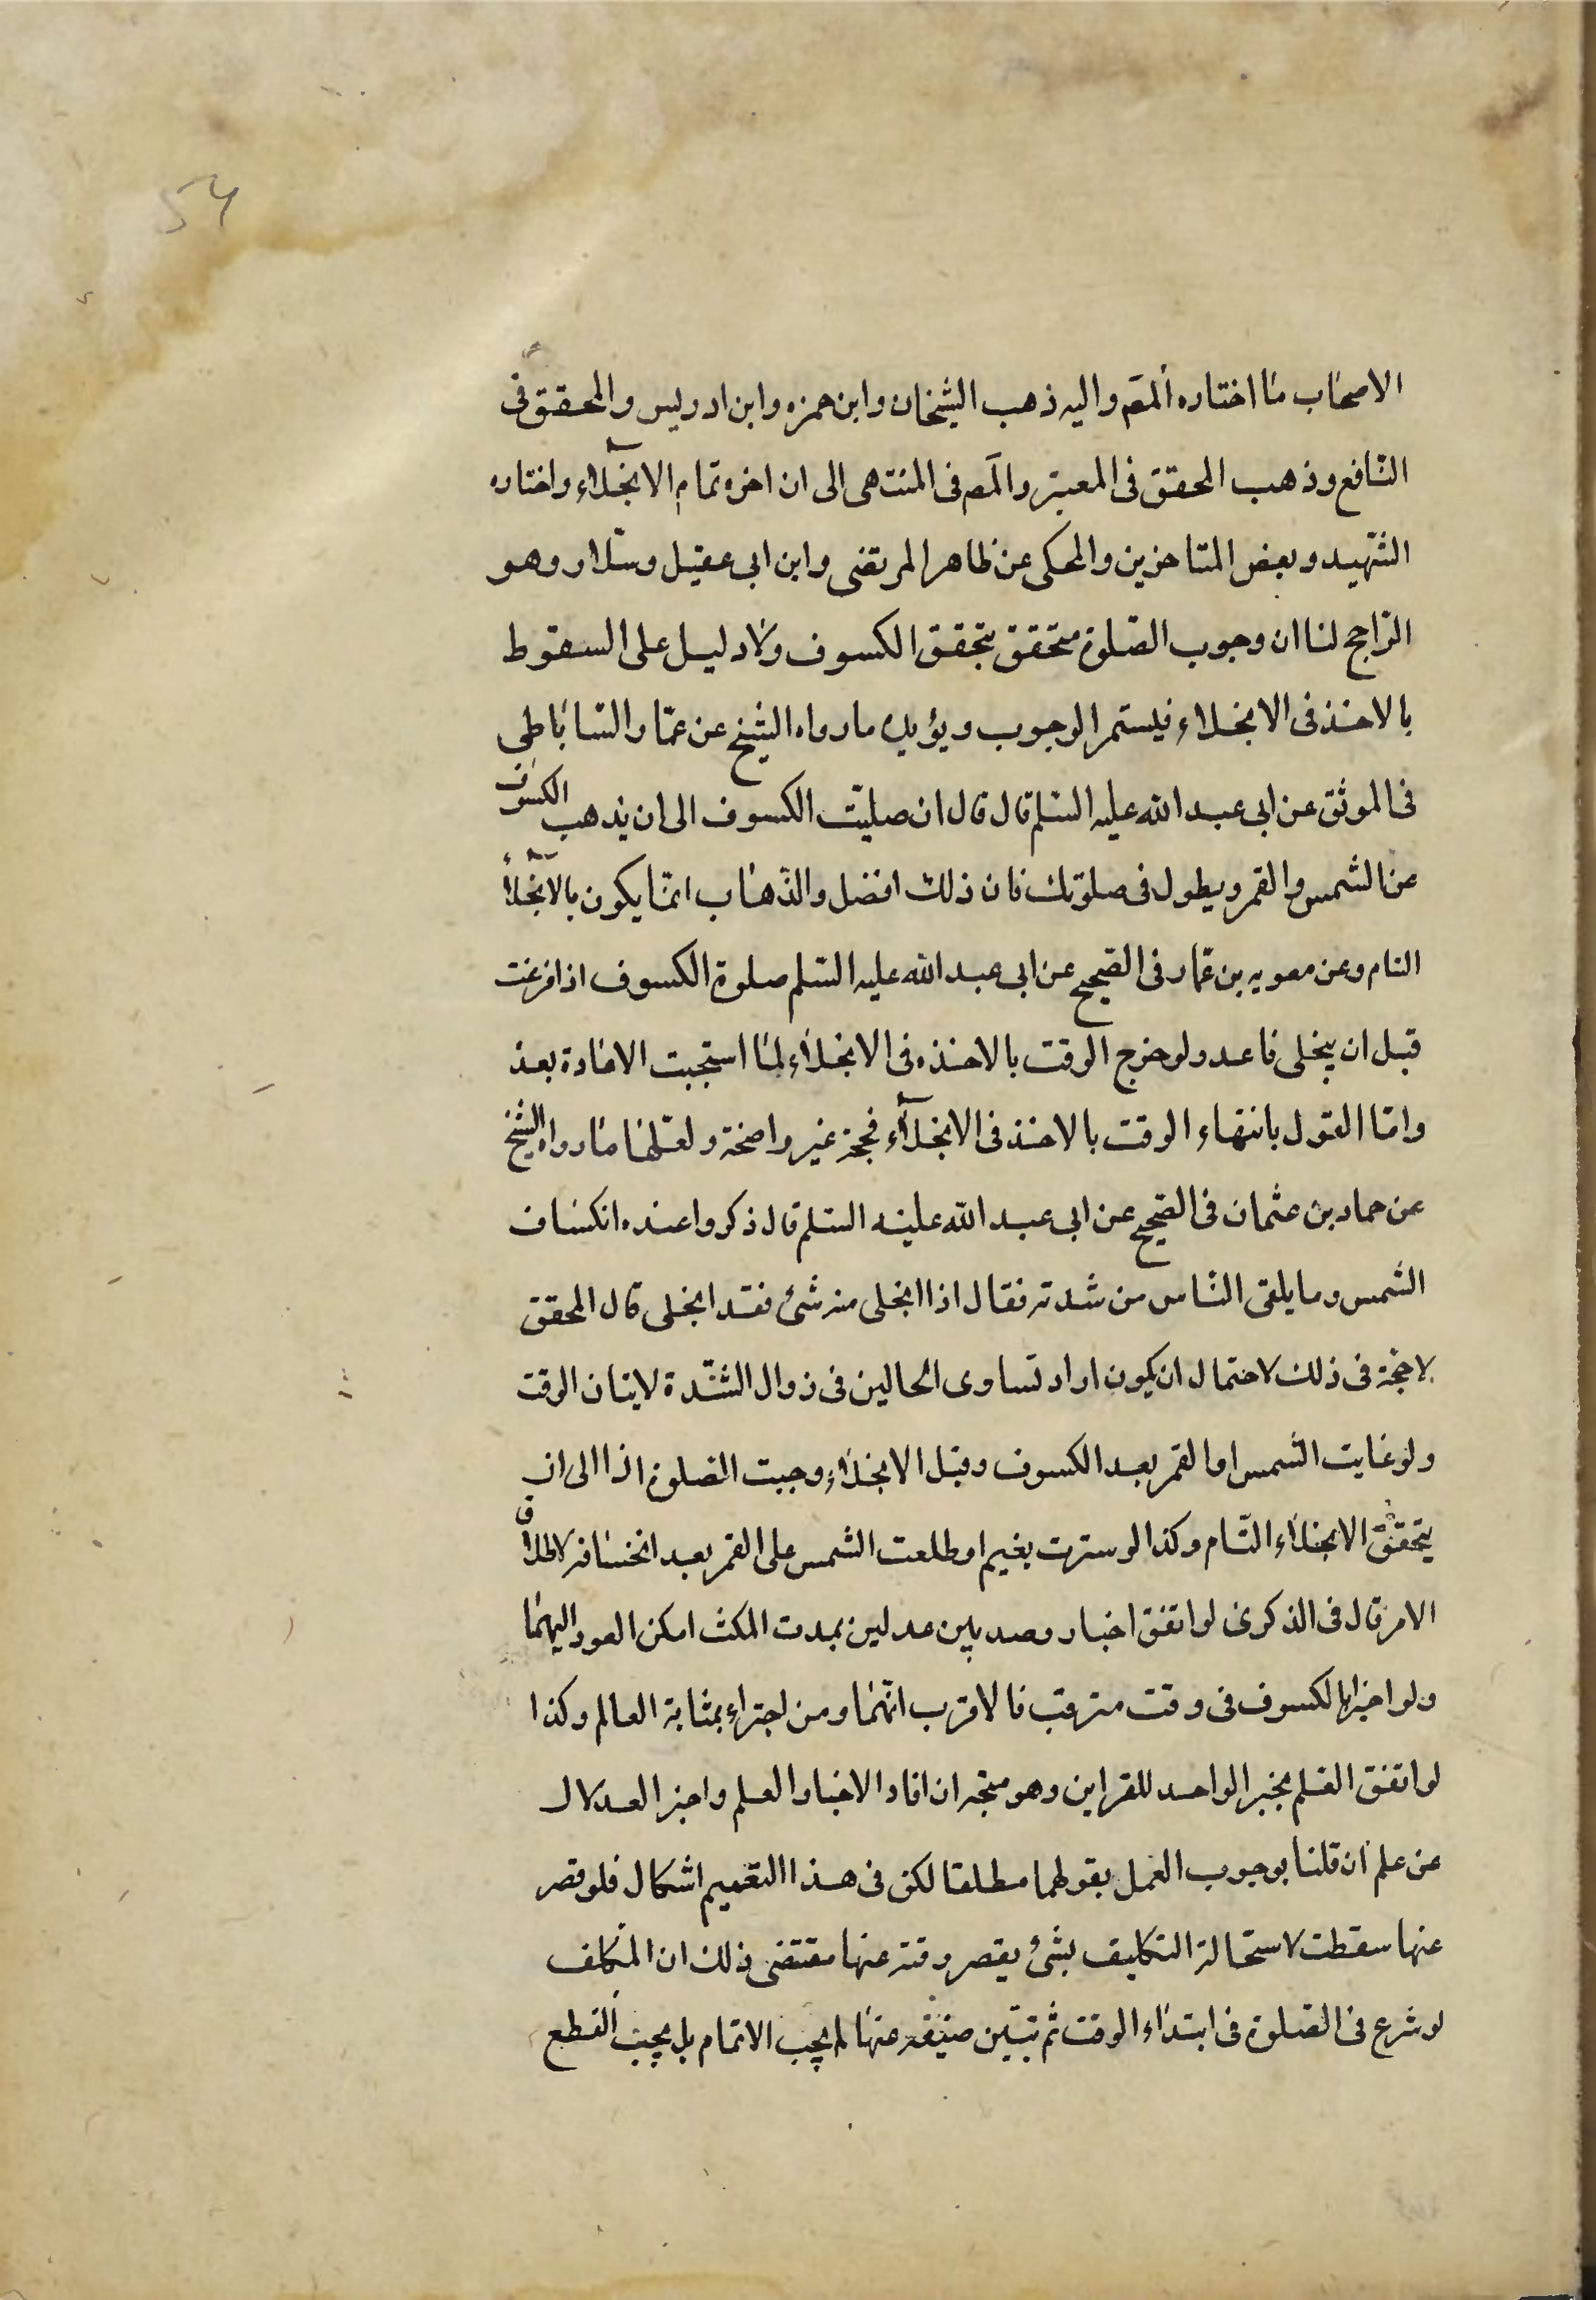 54
الاصحاب ما اختاره المص واليه ذهب الشيخان وابن حمزه وابن ادريس والمحقق فى
النافع وذهب المحقق فى المعتبر والمص فى المنتهى الى ان اخره تمام الانجلاء واختاره
الشهيد وبعض المتاخرين والمحكى عن ظاهر المرتضى وابن ابى عقيل وسلار وهو
الراجح لنا ان وجوب الصلوة متحقق بتحقق الكسوف ولا دليل على السقوط
بالاخذ فى الانجلاء فيستمر الوجوب ويؤيده مارواه الشيخ عن عمار الساباطى
فى الموثق عن ابى عبد الله عليه السلم قال قال ان صليت الكسوف الى ان يذهب الكسوف
عن الشمس والقمر ويطول فى صلوتك فان ذلك افضل والذهاب انما يكون بالانجلاء
التام وعن معويه بن عمار فى الصحيح عن ابى عبد الله عليه السلم صلوة الكسوف اذا فرغت
قبل ان ينجلى فاعد ولو خرج الوقت بالاخذ فى الانجلاء لما استحبت الاعادة بعد
واما القول بانتهاء الوقت بالاخذ فى الانجلاء فحجة غير واضحة ولعلها مارواه الشيخ
عن حماد بن عثمان فى الصحيح عن ابى عبد الله عليه السلم قال ذكروا عنده انكساف
الشمس وما يلقى الناس من شدته فقال اذا انجلى منه شئ فقد انجلى قال المحقق
لا حجة فى ذلك لاحتمال ان يكون اراد تساوى الحالين فى زوال الشدة لا بيان الوقت
ولو غابت الشمس او القمر بعد الكسوف وقبل الانجلاء وجبت الصلوة اذا الى ان
يتحقق الانجلاء التام وكذا لو سترت بغيم او طلعت الشمس على القمر بعد انخسافه لاطلاق
الامر قال فى الذكرى لو اتفق اخبار رصديين عدلين بمدت المكث امكن العود اليهما
ولو اخبرا بالكسوف فى وقت مترقب فالاقرب انهما ومن اخبراه بمثابة العالم وكذا
لو اتفق العلم بخبر الواحد للقراين وهو متجه ان افاد الاخبار العلم واخبر العدلان
عن علم ان قلنا بوجوب العمل بقولهما مطلقا لكن فى هذا التعميم اشكال فلو قصر
عنها سقطت لاستحالة التكليف بشئ يقصر وقته عنها مقتضى ذلك ان المكلف
لو شرع فى الصلوة فى ابتداء الوقت ثم تبين ضيقه عنها لم يجب الاتمام بل يجب القطع